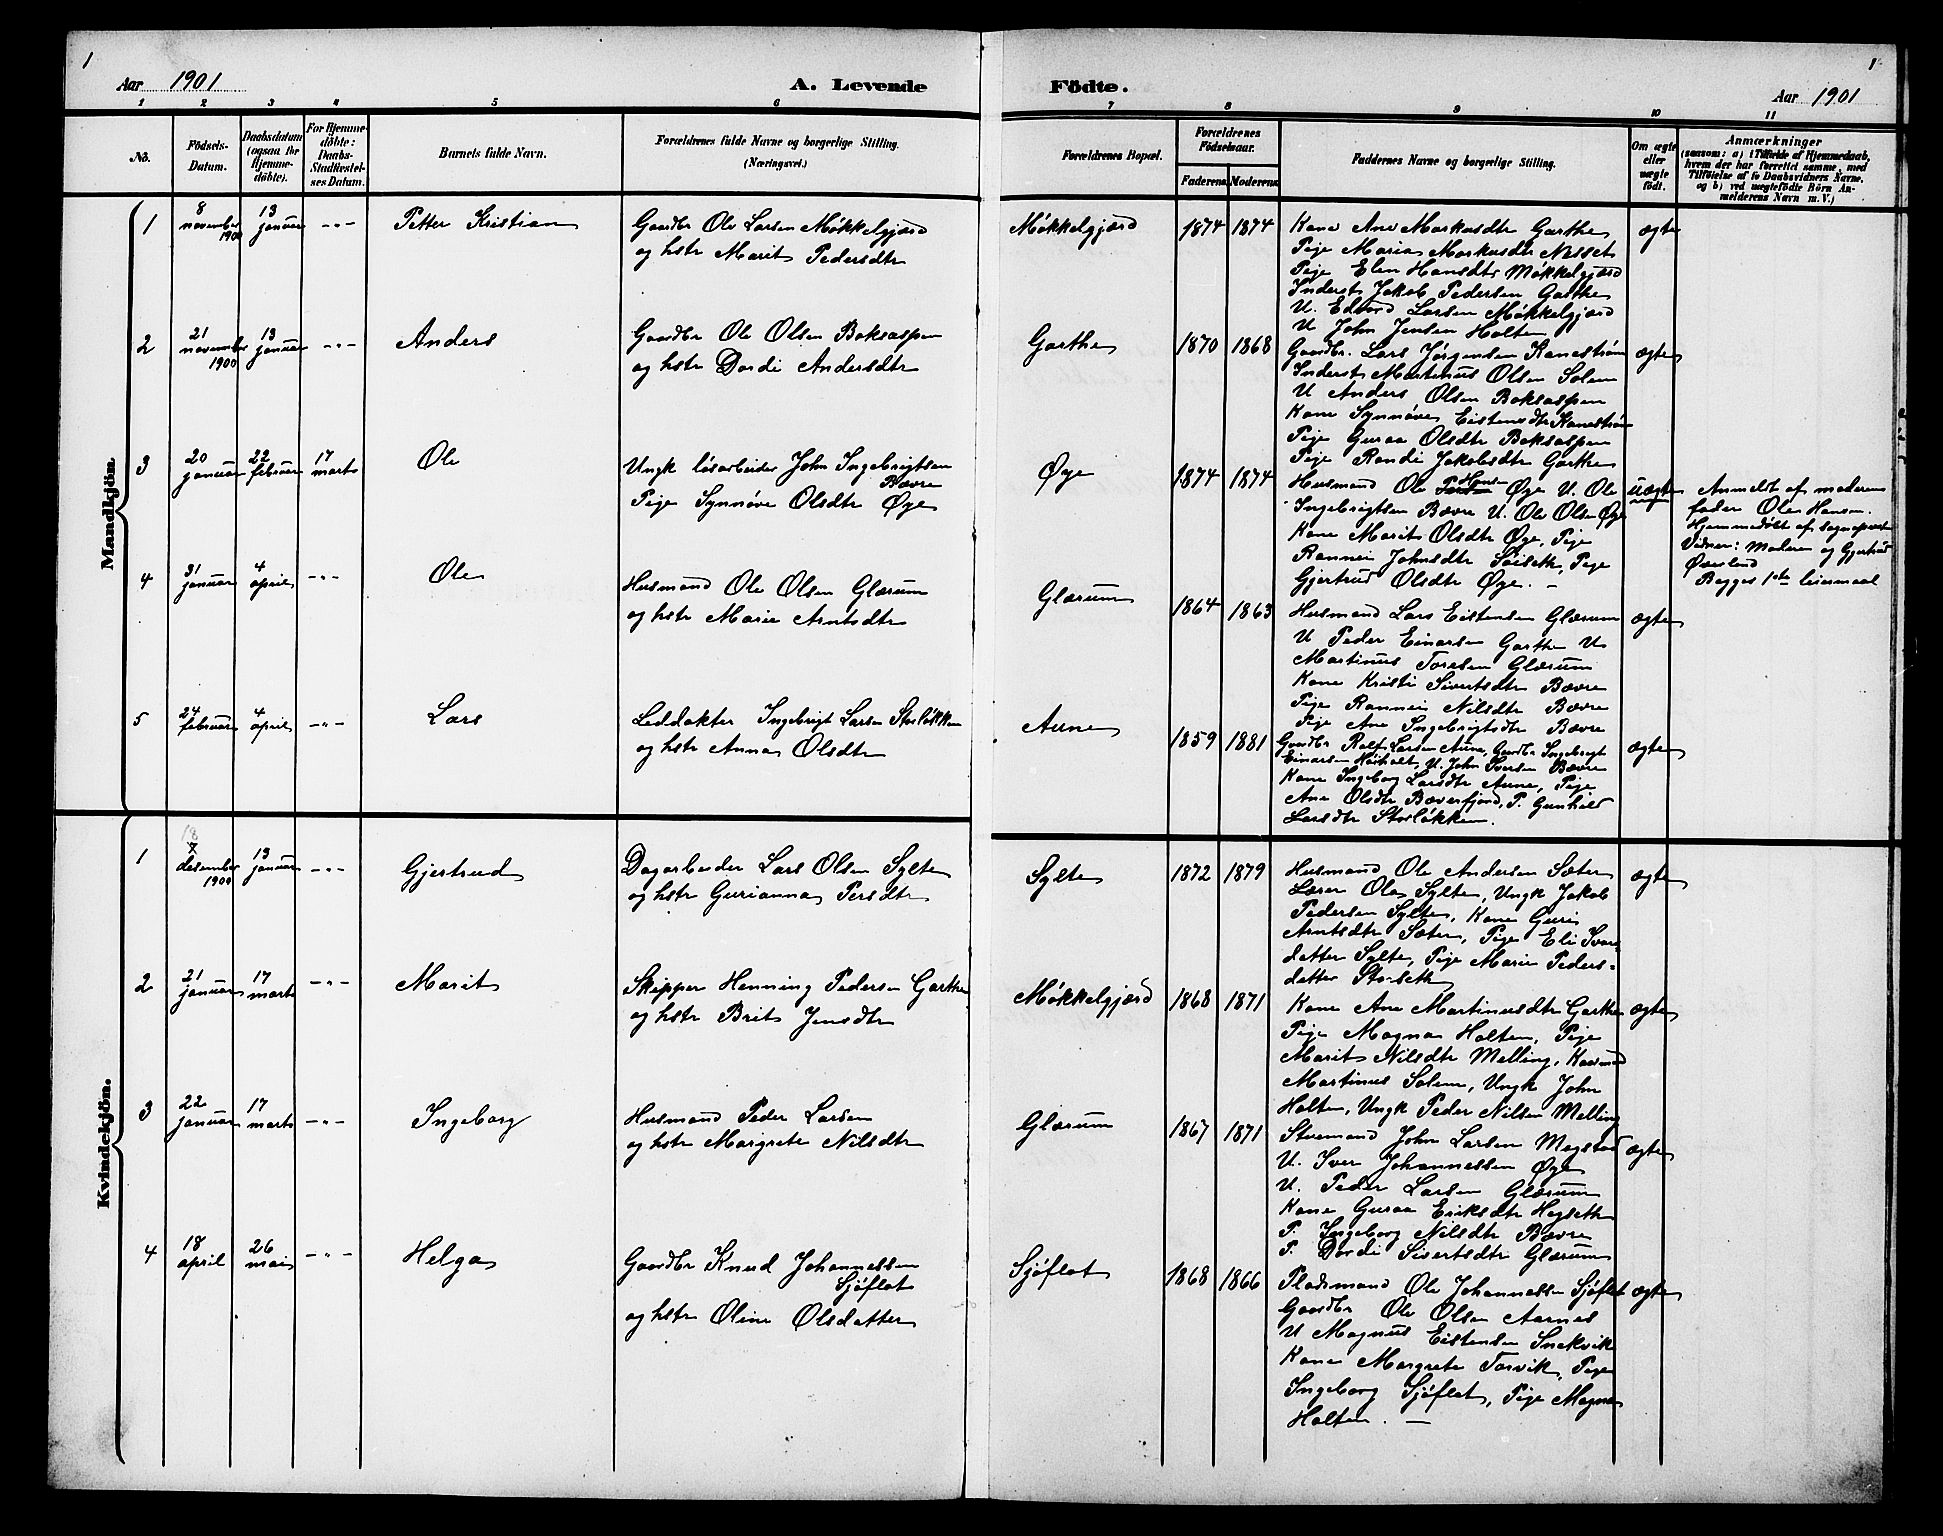 1
Aar 1901
A. Levende
1 2 3 4 5 6
No.
Födsels-Datum.
Daabsdatum (ogsaa for Hjemme-döbte).
For Hjemme-döbte: Daabs-Stadfæstel-ses Datum.
Barnets fulde Navn.
Forældrenes fulde Navne og borgerlige Stilling.
(Næringsvei.)
Mandkjön.
1 8 november 1900 13 januar -"- Petter Kristian
Gaardbr Ole Larsen Møkkelgjærd
og hstr Marit Pedersdtr
2 21 november 1900 13 januar -"- Anders
Gaardbr Ole Olsen Boksaspen
og hstr Dordi Andersdtr
3 20 januar 22 februar 17 marts Ole
Ungk løsarbeider John Ingebrigtsen
Bævre
Pige Synnøve Olsdtr Øye
4 31 januar 4 april -"- Ole
Husmand Ole Olsen Glærum
og hstr Marie Arntsdtr
5 24 februar 4 april -"- Lars
Ingebrigt Larsen Storløkken
og hstr Anna Olsdtr
Kvindekjön.
1 18 desember 1900 13 januar -"- Gjertrud
Dagarbeider Lars Olsen Sylte
og hstr Gurianna Persdtr
2 21 januar 17 marts -"- Marit
Skipper Henning Pedersen Garthe
og hstr Brit Jensdtr
3 22 januar 17 marts -"- Ingeborg
Husmand Peder Larsen
og hstr Margrete Nilsdtr
4 18 april 26 mai -"- Helga
Gaardbr Knud Johannessen
Sjøflot
og hstr Oline Olsdatter
Födte.
1
Aar 1901
7 8 9 10 11
Forældrenes Bopæl.
Forældrenes Födselsaar.
Faderens. Moderens.
Faddernes Navne og borgerlige Stilling.
Om ægte eller uægte födt.
Anmærkninger
(saasom: a) i Tilfælde af Hjemmedaab,
hvem der har forrettet samme, med
Tilföielse af to Daabsvidners Navne,
og b) ved uægtefödte Börn An-
melderens Navn m. V.)
Møkkelgjærd 1874 1874 ægte
Kone Ane Markusdtr Garthe
Pige Maria Markusdtr Nesset
Pige Elen Hansdtr Møkkelgjærd
Inderst Jakob Pedersen Garthe
U. Edvard Larsen Møkkelgjærd
U John Jensen Holten
Garthe 1870 1868 ægte
Gaardbr. Lars Jørgensen Kanestrøm
Inderst Martinus Olsen Solem
U Anders Olsen Boksaspen
Kone Synnøve Eistensdtr Kanestrøm
Pige Guraa Olsdtr Boksaspen
Pige Randi Jakobsdtr Garthe
Øye 1874 1874 uægte
Husmand Ole Hansen Øye U. Ole
Ingebrigtsen Bævre U. Ole Olsen Øye
Kone Marit Olsdtr Øye, Pige
Rannei Johnsdtr Settseth, Pige
Gjertrud Olsdtr Øye. –
Anmeldt af moderens
fader Ole Hansen.
Hjemmedøbt af sogneprest
Vidner: Moderen og Gjertrud
Øverland
Begges 1ste leiermaal
Glærum 1864 1863 ægte
Husmand Lars Eistensen Glærum
U Peder Einarsen Garthe U
Martinus Toresen Glærum
Kone Kristi Sivertsdtr Bævre
Pige Rannei Nilsdtr Bævre
Pige Ane Ingebrigtsdtr Bævre
Aune 1859 1881 ægte
Gaardbr Ralf Larsen Aune, Gaardbr Ingebrigt
Einarsen Høiholt, U. John Iversen Bævre
Kone Ingeborg Larsdtr Aune, Pige
Ane Olsdtr Bæverfjord, P. Gunhild
Larsdtr Storløkken.
Sylte 1872 1879 ægte
Husmand Ole Andersen Sæter
Lærer Ola Sylte, Ungk Jakob
Pedersen Sylte, Kone Guri
Arntsdtr Sæter, Pige Eli Ivers-
datter Sylte, Pige Marie Peders-
datter Storseth
Møkkelgjærd 1868 1871 ægte
Kone Ane Martinusdtr Garthe
Pige Magna Holten, Pige
Marit Nilsdtr Melling, Kaarmand
Martinus Solem, Ungk John
Holten, Ungk Peder Nilsen Melling
Glærum 1867 1871 ægte
Stuemand John Larsen Megstad
U. Iver Johannessen Øye
U. Peder Larsen Glærum
Kone Guraa Eriksdtr Hegseth
P. Ingeborg Nilsdtr Bævre
P. Dordi Sivertsdtr Glærum
Sjøflot 1868 1866 ægte
Pladsmand Ole Johannessen Sjøflot
Gaardbr Ole Olsen Aarnes
U Magnus Eistensen Snekvik
Kone Margrete Torvik, Pige
Ingeborg Sjøflot, Pige Magna
Holten. –